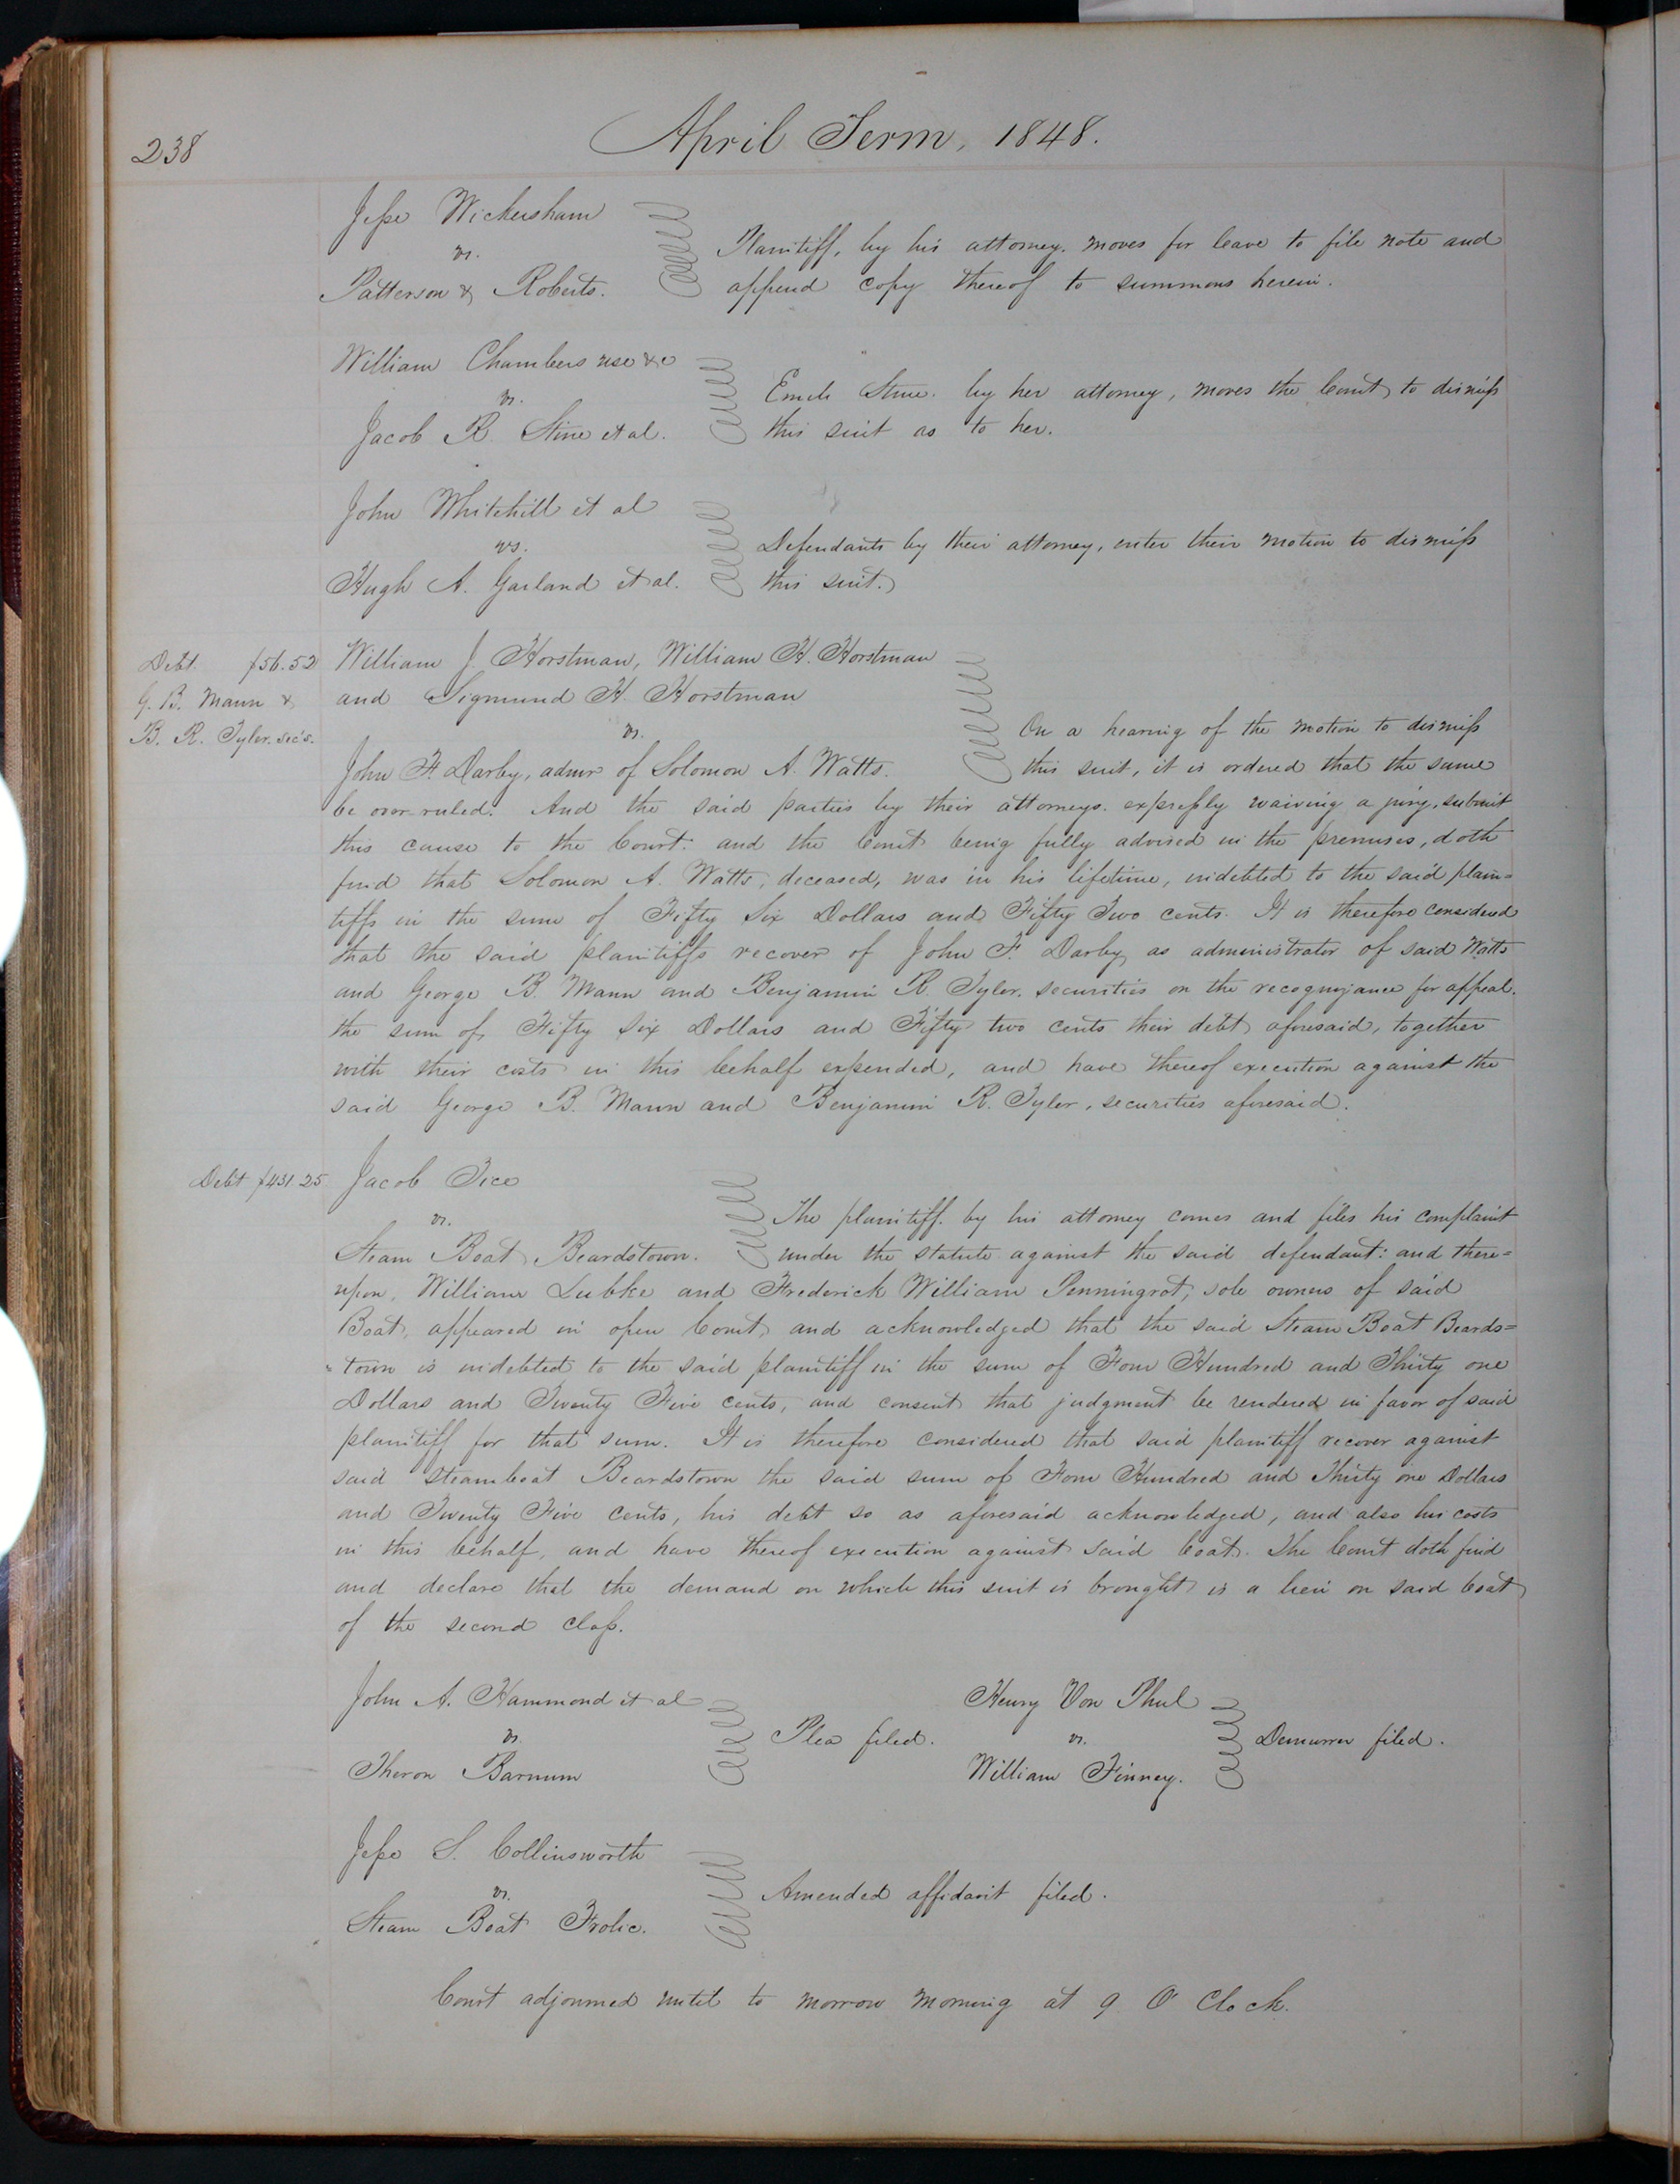 238
April Term, 1848.
Jesse Wickersham
vs.
Patterson & Roberts.
Plaintiff, by his attorney, moves for leave to file note and
append copy thereof to summons herein.
William Chambers use &c
vs.
Jacob R. Stine et al.
Stine, by her attorney, moves the Court to dismiss
this suit as to her.
John Whitehill et al
vs.
Hugh A. Garland et al.
Defendants by their attorney, enter their motion to dismiss
this suit.
Debt. $56.52
G. B. Mann &
B. R. Tyler. sec's.
William J. Horstman, William H. Horstman
and Sigmund H. Horstman
vs.
John F. Darby, admr of Solomon A. Watts.
On a hearing of the motion to dismiss
this suit, it is ordered that the same
be over-ruled. And the said parties by their attorneys, expressly waiving a jury, submit
this cause to the Court: and the Court being fully advised in the premises, doth
find that Solomon A. Watts, deceased, was in his lifetime, indebted to the said plain=
tiffs in the sum of Fifty Six Dollars and Fifty Two cents. It is therefore considered
that the said plaintiffs recover of John F. Darby, as administrator of said Watts
and George B. Mann and Benjamin R. Tyler, securities on the recognizance for appeal,
the sum of Fifty Six Dollars and Fifty two cents their debt aforesaid, together
with their costs in this behalf expended, and have thereof execution against the
said George B. Mann and Benjamin R. Tyler, securities aforesaid.
Debt $431 25
Jacob Tice
vs.
Steam Boat Beardstown.
The plaintiff by his attorney comes and files his complaint
under the statute against the said defendant: and there=
upon, William Lubke and Frederick William Penningrot, sole owners of said
Boat, appeared in open Court, and acknowledged that the said Steam Boat Beards=
=town is indebted to the said plaintiff in the sum of Four Hundred and Thirty one
Dollars and Twenty Five cents, and consent that judgment be rendered in favor of said
plaintiff for that sum. It is therefore considered that said plaintiff recover against
said Steamboat Beardstown the said sum of Four Hundred and Thirty one Dollars
and Twenty Five Cents, his debt so as aforesaid acknowledged, and also his costs
in this behalf, and have thereof execution against said boat. The Court doth find
and declare that the demand on which this suit is brought is a lien on said boat
of the second class.
John A. Hammond et al
vs.
Theron Barnum
Plea filed.
Henry Von Phul
vs.
William Finney.
Demurrer filed.
Jesse S. Collinsworth
vs.
Steam Boat Frolic.
Amended affidavit filed.
Court adjourned until to morrow morning at 9 O Clock.